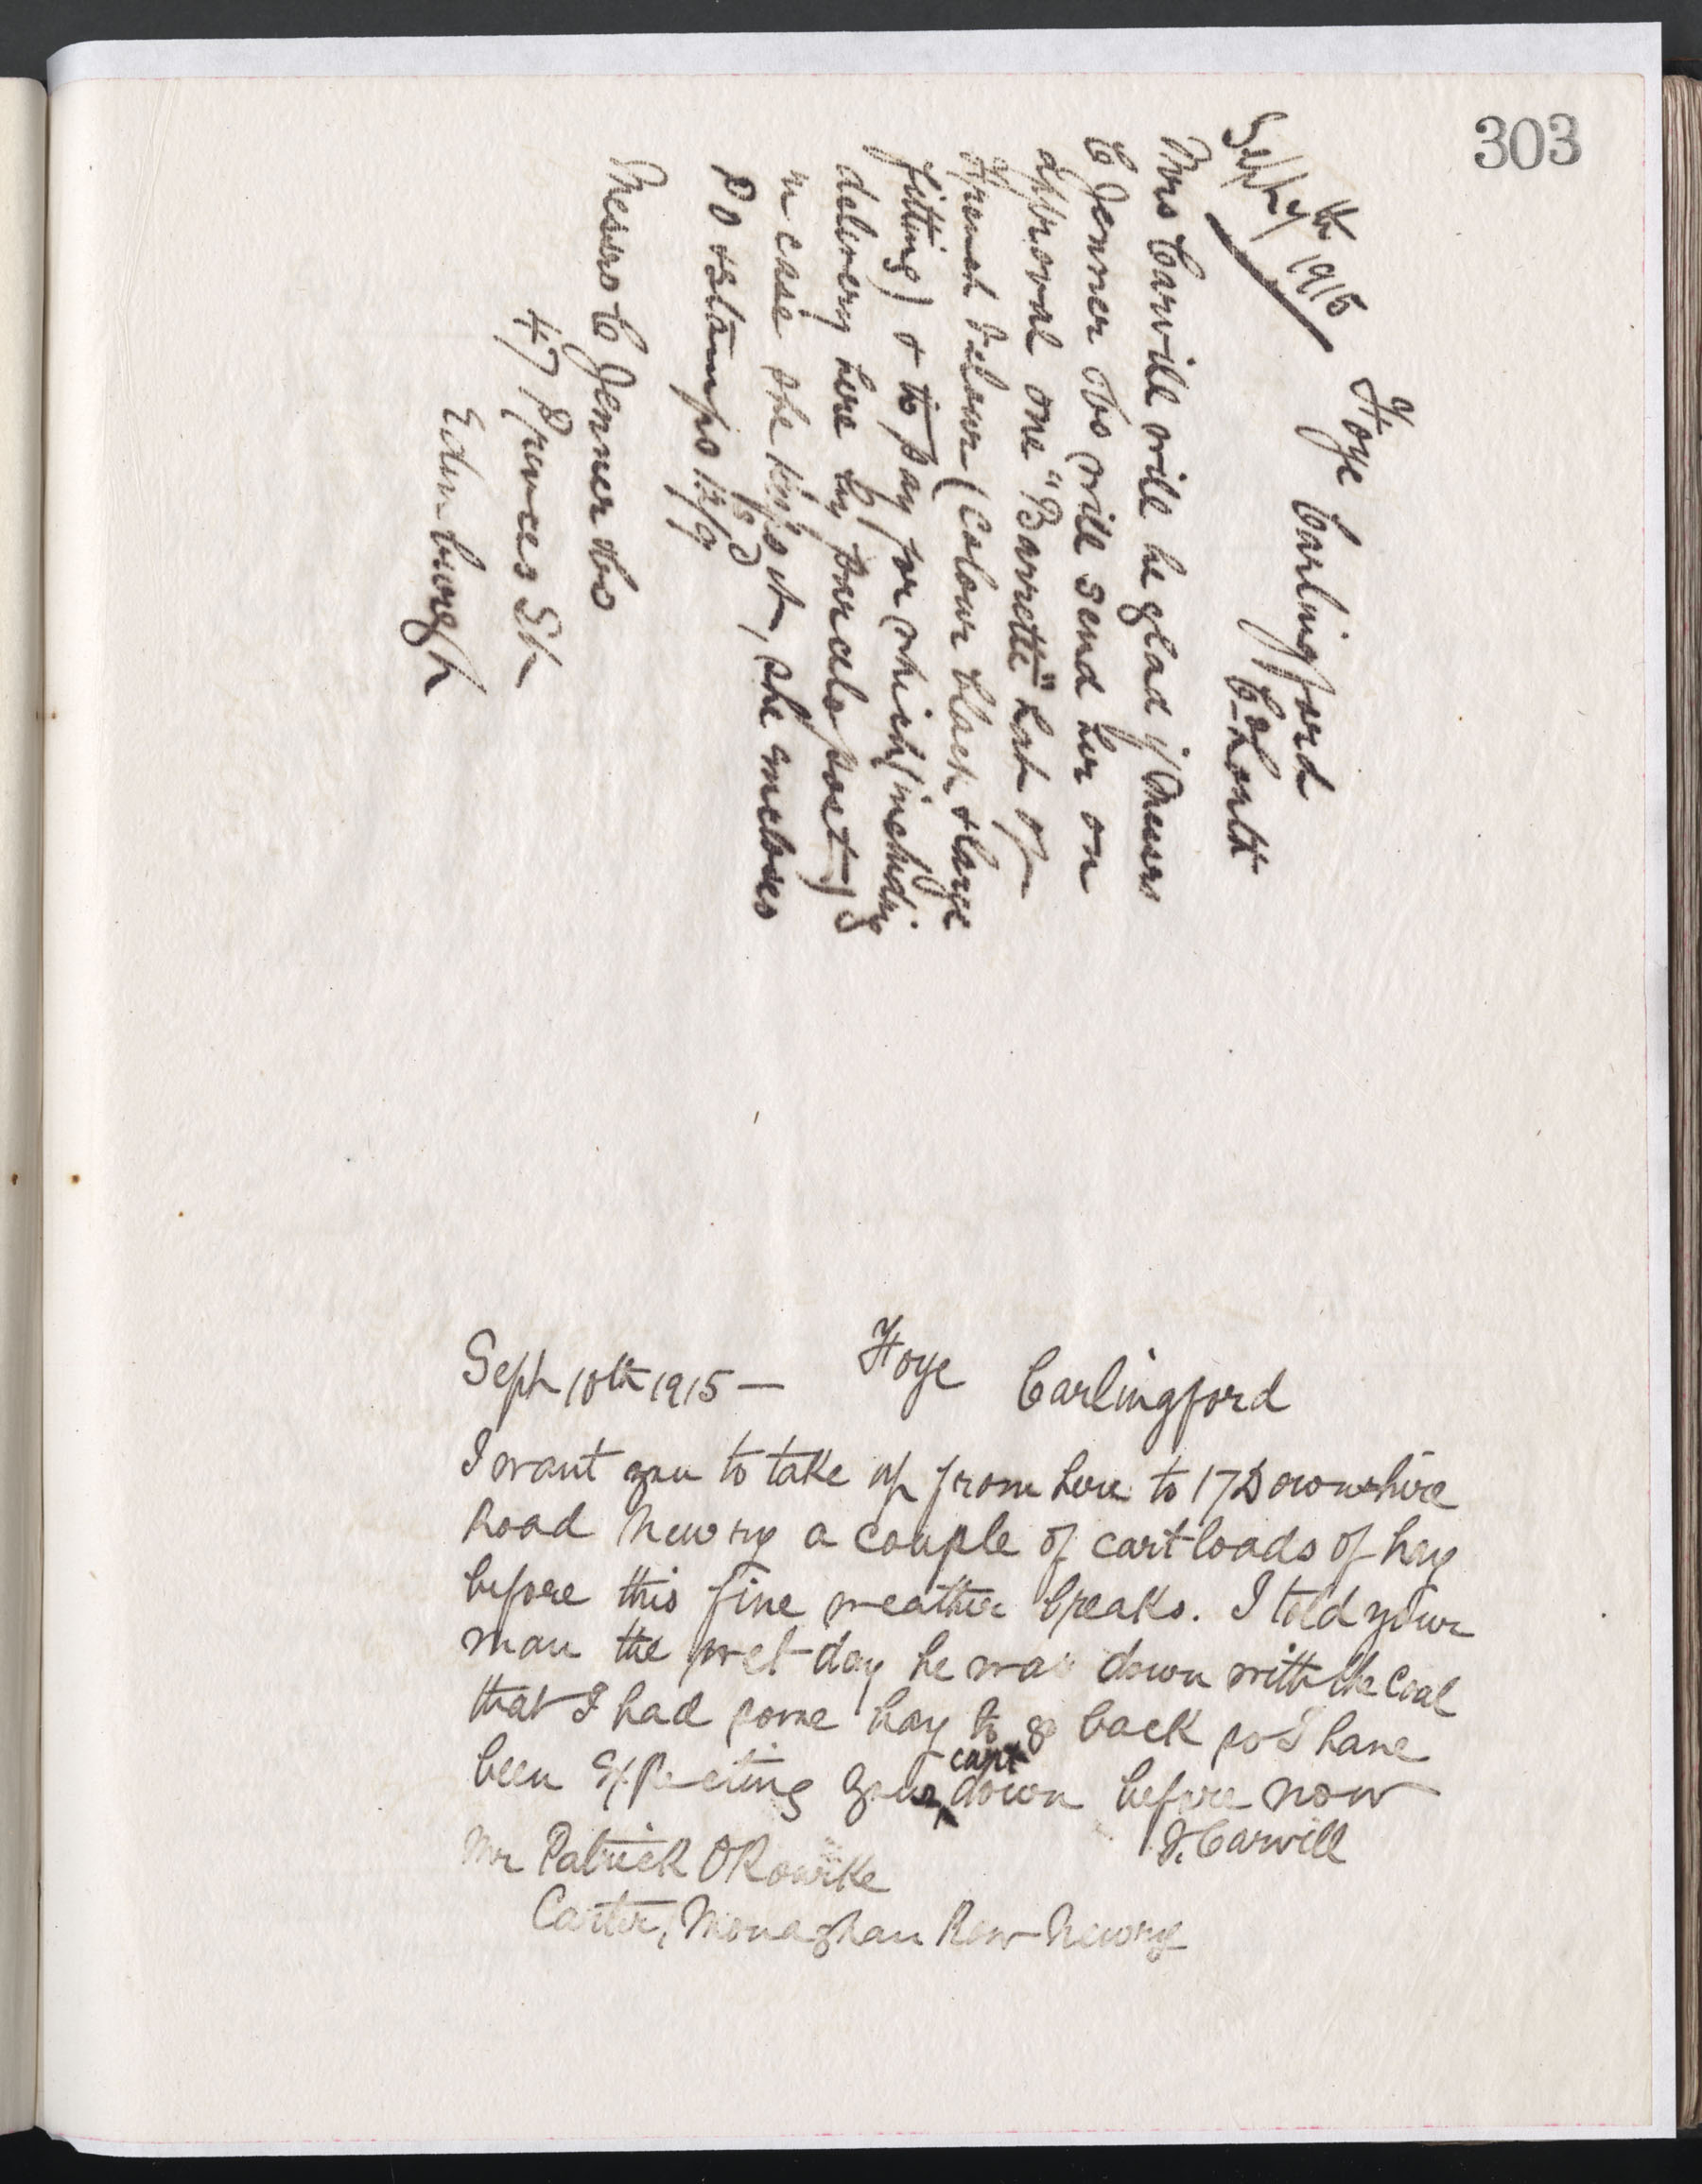 303
Sept 9th 1915
Foye Carlingford
Co Louth
Mrs Carvill will be glad if Messrs
C Jenner & Co will send her on
approval one "Barrette" hat of
French Velour (Colour black & large
fitting) & to pay for which (including
delivery here by parcels post)
in case she keeps it, she encloses
PO & stamps
Messrs C Jenner & Co
47 Princes St
Edinburgh
Sept 10th 1915 — Foye Carlingford
I want you to take up from here to 17 Downshire
Road Newry a couple of cart loads of hay
before this fine weather breaks. I told your
man the wet day he was down with the coal
that I had some hay to go back so I have
been expecting your cart down before now
J. Carvill
Mr Patrick O'Rourke
Carter, Monaghan Row Newry